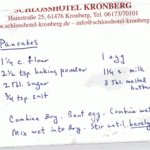 SCHLOSSHOTEL KRONBERG
Hainstraße 25, 61476 Kronberg, Tel. 06173/70101
www.schlosshotel-kronberg.de • info@schlosshotel-kronberg.de
Pancakes
1¼ c. flour
2½ tsp baking powder
2 Tbl. sugar
¾ tsp. salt
1 egg
1¼ c. milk
3 Tbl. melted
Combine dry. Beat egg. Combine wet
Mix wet into dry. Stir until barely